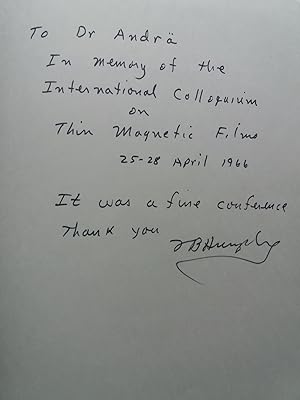 To Dr Andrä
In memory of the
International Colloquium
on
Thin Magnetic Films
25-28 April 1966
It was a fine conference
Thank you